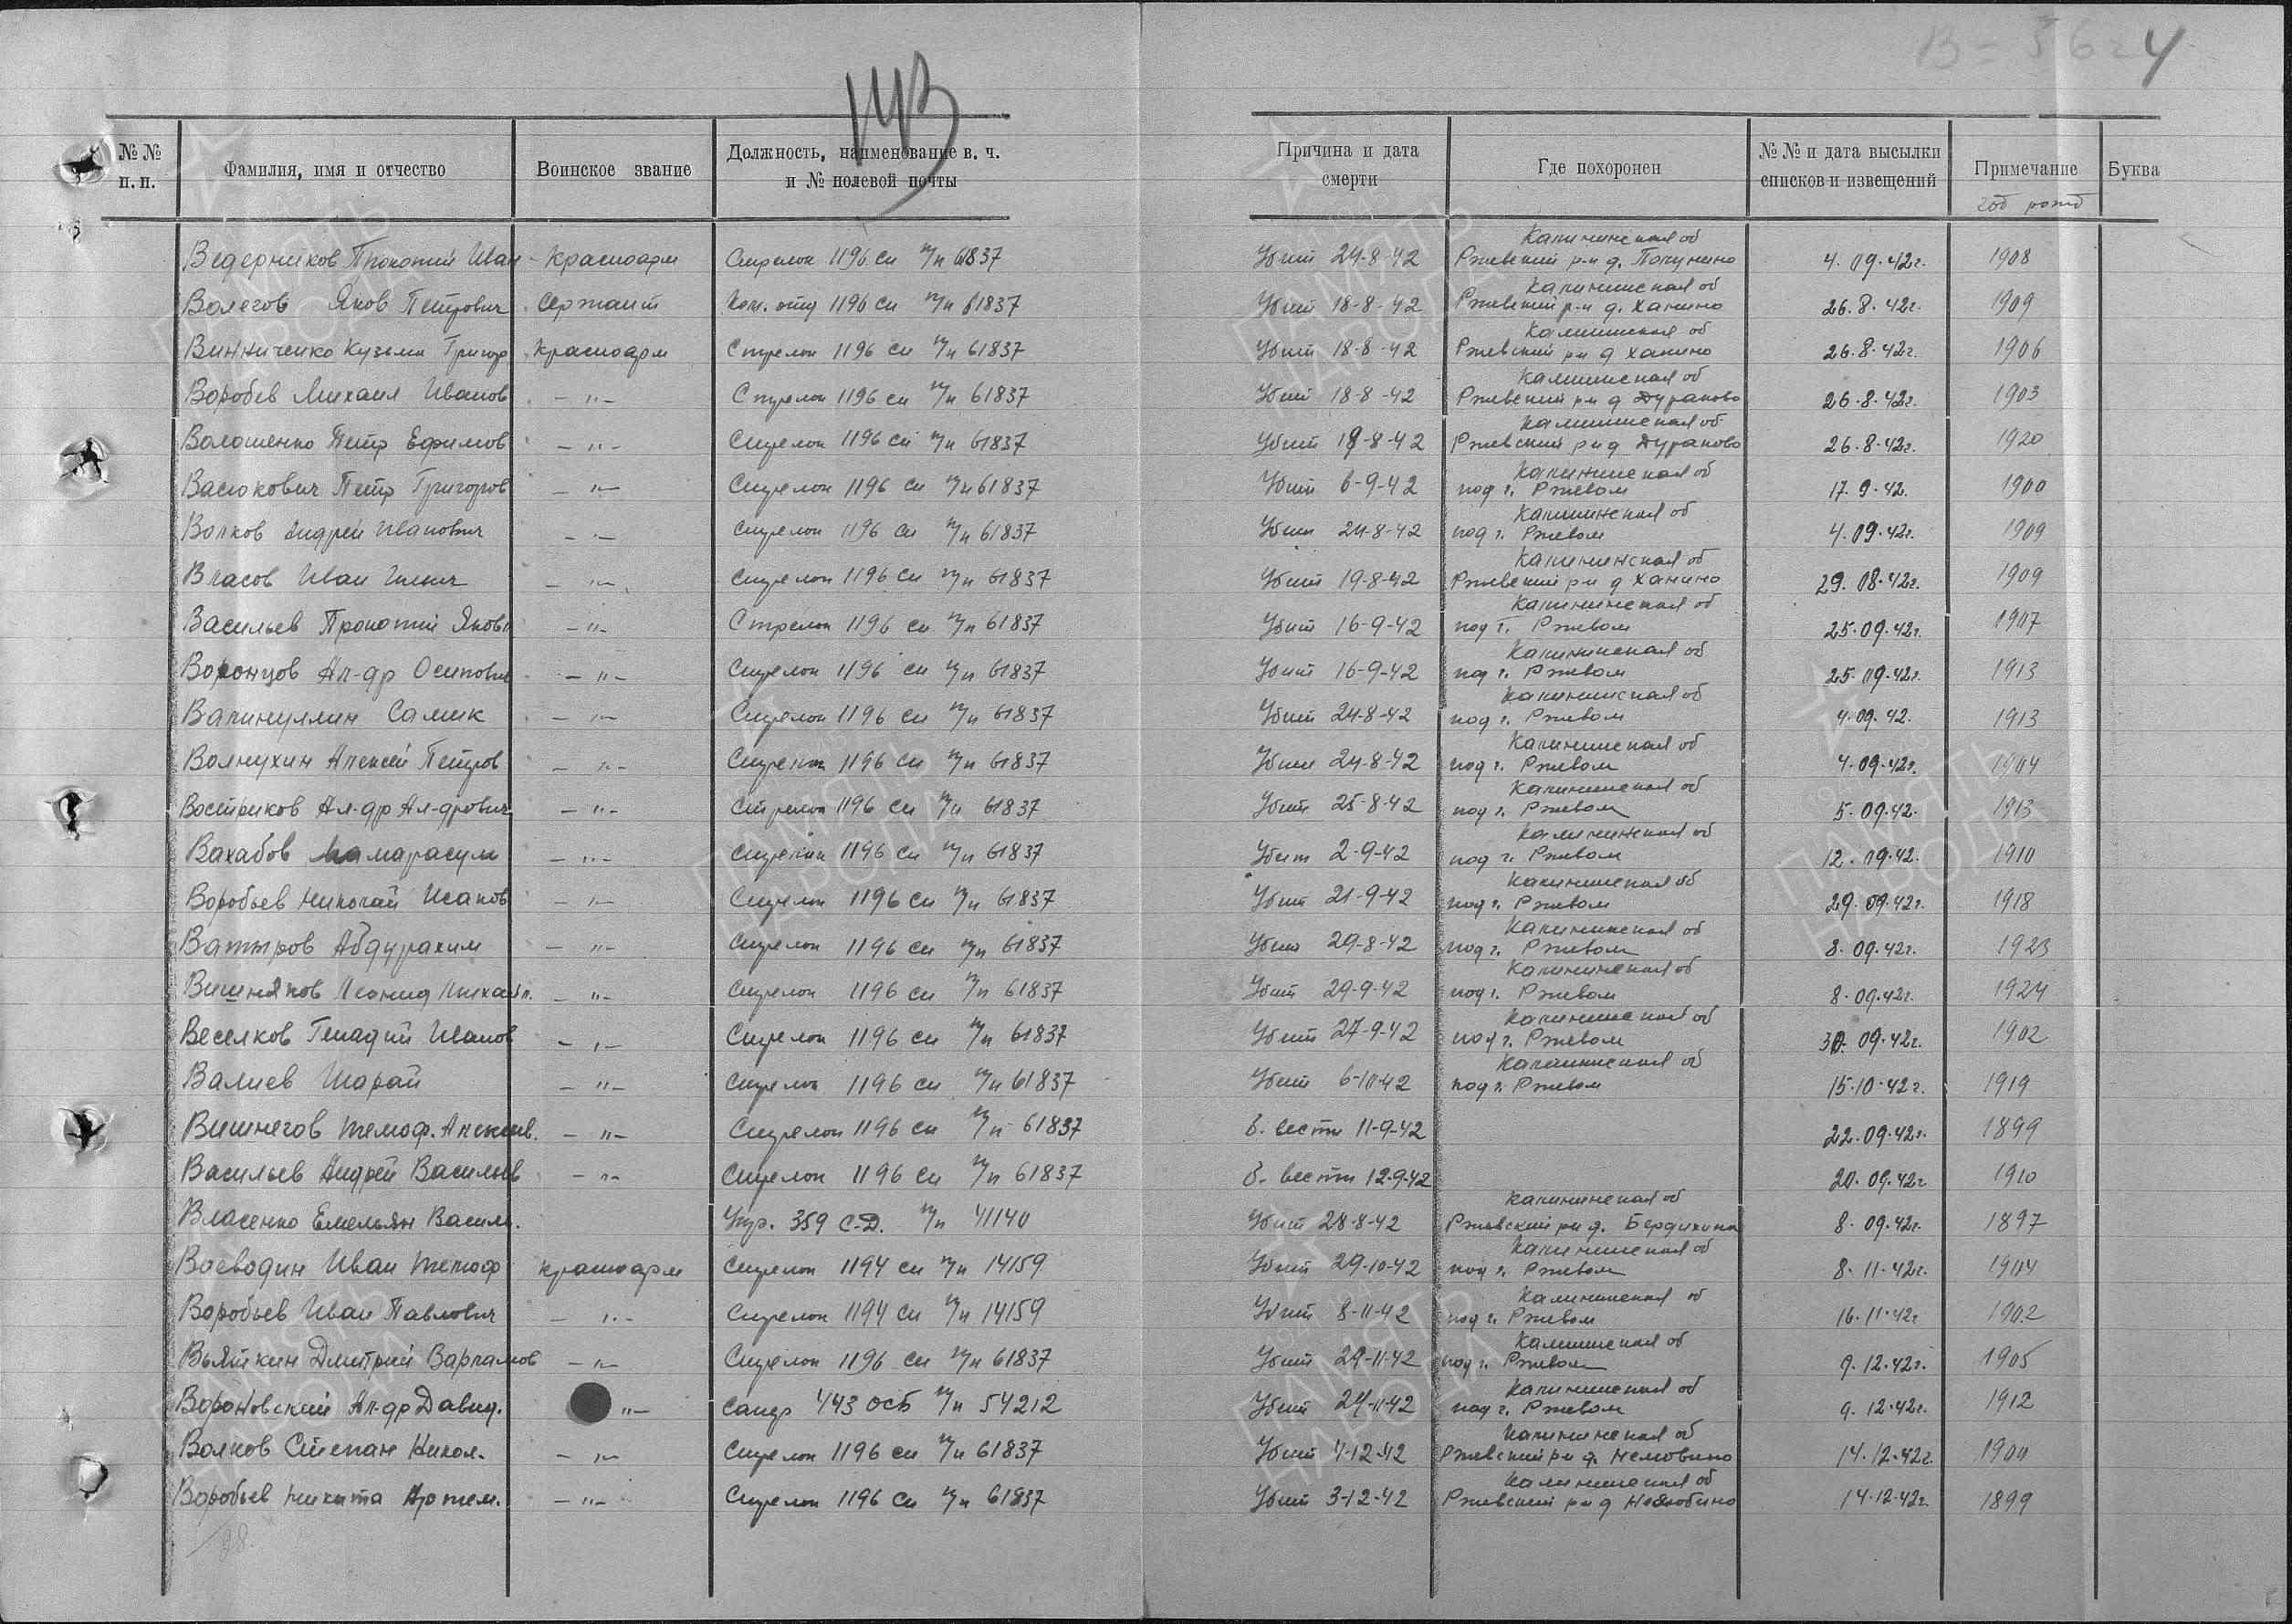 4
113
№ № п. п. Фамилия, имя и отчество Воинское звание Должность, наименование в. ч. и № полевой почты Причина и дата смерти Где похоронен № № и дата высылки списков и извещений Примечание Буква
год рожд
Калининская об
Ведерников Прокопий Иван - Красноарм Стрелок 1196 сп п/п 61837 Убит 24-8-42 Ржевский р-н д. Полунино 4. 09. 42г. 1908
Калининская об
Волегов Яков Петрович Сержант Ком. отд 1196 сп п/п 61837 Убит 18-8-42 Ржевский р-н д. Ханино 26. 8. 42г. 1909
Калининская об
Винниченко Кузьма Григор Красноарм Стрелок 1196 сп п/п 61837 Убит 18-8-42 Ржевский рн д Ханино 26. 8. 42г. 1906
Калининская об
Воробев Михаил Иванов - " - Стрелок 1196 сп п/п 61837 Убит 18-8-42 Ржевский рн д Дураково 26. 8. 42г. 1903
Калининская об
Волошенко Петр Ефимов - " - Стрелок 1196 сп п/п 61837 Убит 18-8-42 Ржевский рн д Дураково 26. 8. 42г. 1920
Калининская об
Васюкович Петр Григоров - " - Стрелок 1196 сп п/п 61837 Убит 6-9-42 под г. Ржевом 17. 9. 42. 1900
Калининская об
Волков Андрей Иванович - " - Стрелок 1196 сп п/п 61837 Убит 24-8-42 под г. Ржевом 4. 09. 42г. 1909
Калининская об
Власов Иван Ильич - " - Стрелок 1196 сп п/п 61837 Убит 19-8-42 Ржевский рн д Ханино 29. 08. 42г. 1909
Калининская об
Васильев Прокопий Яковл - " - Стрелок 1196 сп п/п 61837 Убит 16-9-42 под г. Ржевом 25. 09. 42г. 1907
Калининская об
Воронцов Ал-др Осипович - " - Стрелок 1196 сп п/п 61837 Убит 16-9-42 под г. Ржевом 25. 09. 42г. 1913
Калининская об
Валинуллин Салик - " - Стрелок 1196 сп п/п 61837 Убит 24-8-42 под г. Ржевом 4. 09. 42. 1913
Калининская об
Волнухин Алексей Петров - " - Стрелок 1196 сп п/п 61837 Убит 24-8-42 под г. Ржевом 4. 09. 42г. 1904
Калининская об
Востриков Ал-др Ал-дрович - " - Стрелок 1196 сп п/п 61837 Убит 25-8-42 под г. Ржевом 5. 09. 42. 1913
Калининская об
Вахабов Мамарасул - " - Стрелок 1196 сп п/п 61837 Убит 2-9-42 под г. Ржевом 12. 09. 42. 1910
Калининская об
Воробьев Николай Исаков - " - Стрелок 1196 сп п/п 61837 Убит 21-9-42 под г. Ржевом 29. 09. 42г. 1918
Калининская об
Ватыров Абдурахим - " - Стрелок 1196 сп п/п 61837 Убит 29-8-42 под г. Ржевом 8. 09. 42г. 1923
Калининская об
Вишняков Леонид Михайл. - " - Стрелок 1196 сп п/п 61837 Убит 29-9-42 под г. Ржевом 8. 09. 42г. 1924
Калининская об
Веселков Генадий Иванов - " - Стрелок 1196 сп п/п 61837 Убит 27-9-42 под г. Ржевом 30. 09. 42г. 1902
Калининская об
Валиев Шарай - " - Стрелок 1196 сп п/п 61837 Убит 6-10-42 под г. Ржевом 15. 10. 42г. 1919
Вишнегов Темоф. Алексеев. - " - Стрелок 1196 сп п/п 61837 б. вести 11-9-42 22. 09. 42г. 1899
Васильев Андрей Васильев - " - Стрелок 1196 сп п/п 61837 б. вести 12-9-42 20. 09. 42г 1910
Калининская об
Власенко Емельян Василь. Упр. 359 С.Д. п/п 41140 Убит 28-8-42 Ржевский рн д. Бердихина 8. 09. 42г. 1897
Калининская об
Воеводин Иван Темоф Красноарм Стрелок 1194 сп п/п 14159 Убит 29-10-42 под г. Ржевом 8. 11. 42г. 1904
Калининская об
Воробьев Иван Павлович - " - Стрелок 1194 сп п/п 14159 Убит 8-11-42 под г. Ржевом 16. 11. 42г 1902
Калининская об
Вьяткин Дмитрий Варламов - " - Стрелок 1196 сп п/п 61837 Убит 29-11-42 под г. Ржевом 9. 12. 42г. 1905
Калининская об
Вороновский Ал-др Давид. " - Сапер 443 осб п/п 54212 Убит 24-11-42 под г. Ржевом 9. 12. 42г. 1912
Калининская об
Волков Степан Никол. - " - Стрелок 1196 сп п/п 61837 Убит 4-12-42 Ржевский рн д. 14. 12. 42г. 1900
Калининская об
Воробьев Никита Артем. - " - Стрелок 1196 сп п/п 61837 Убит 3-12-42 Ржевский рн д 14. 12. 42г. 1899
28.
ПАМЯТЬ НАРОДА